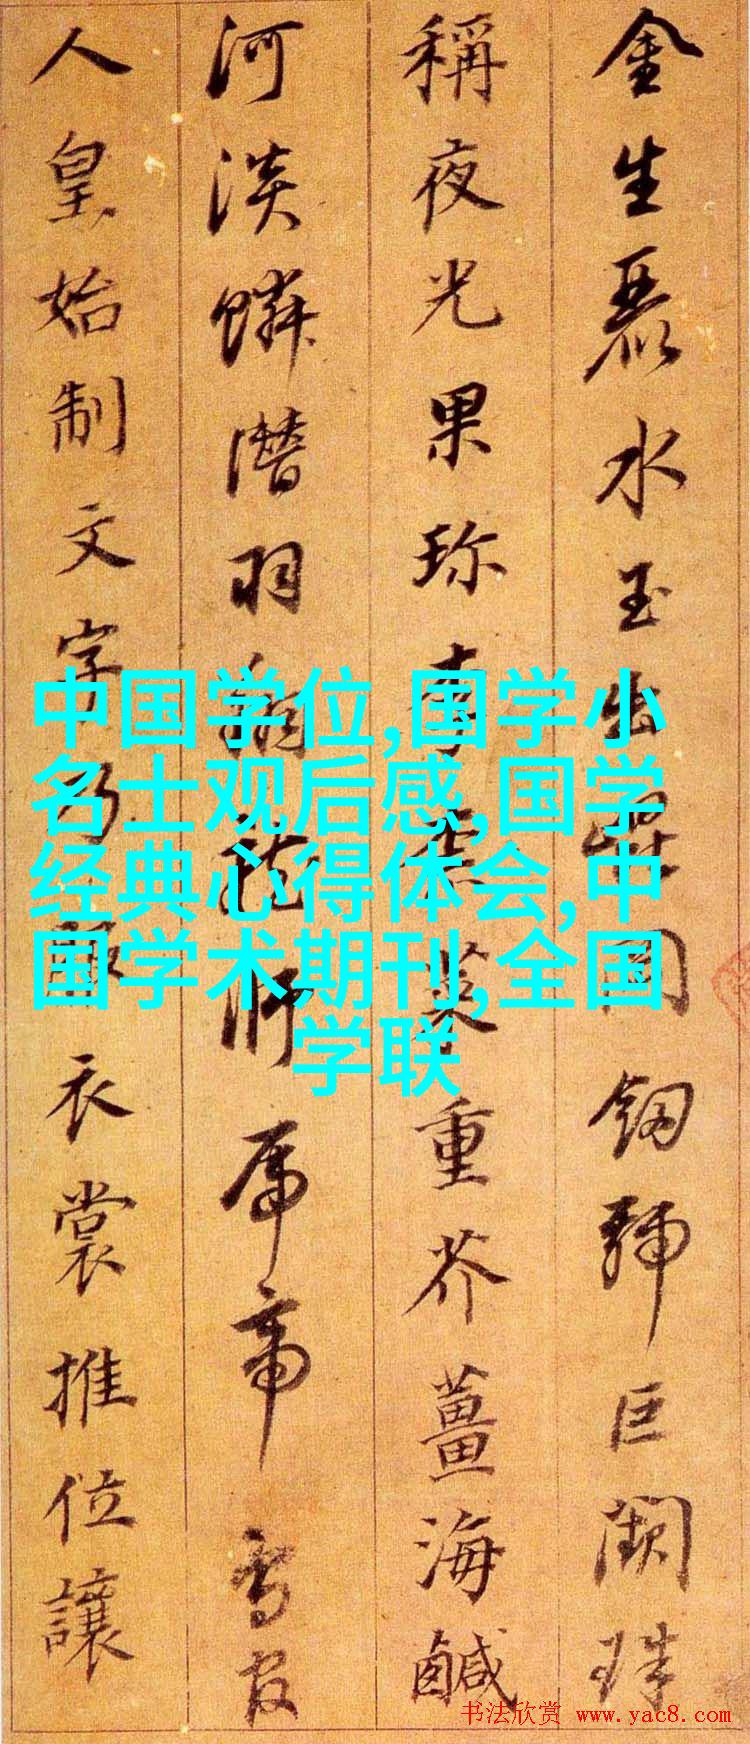 金生麗水玉出崑岡釼號巨闕珠
稱夜光果珍李柰菜重芥薑海鹹
河淡鱗潛羽翔龍師帝鳥官
人皇始制文字乃服衣裳推位讓
中国学位,国学小
名士观后感,国学
经典心得体会,中
国学术期刊,全国
学联
书法欣赏 www.yac8.com